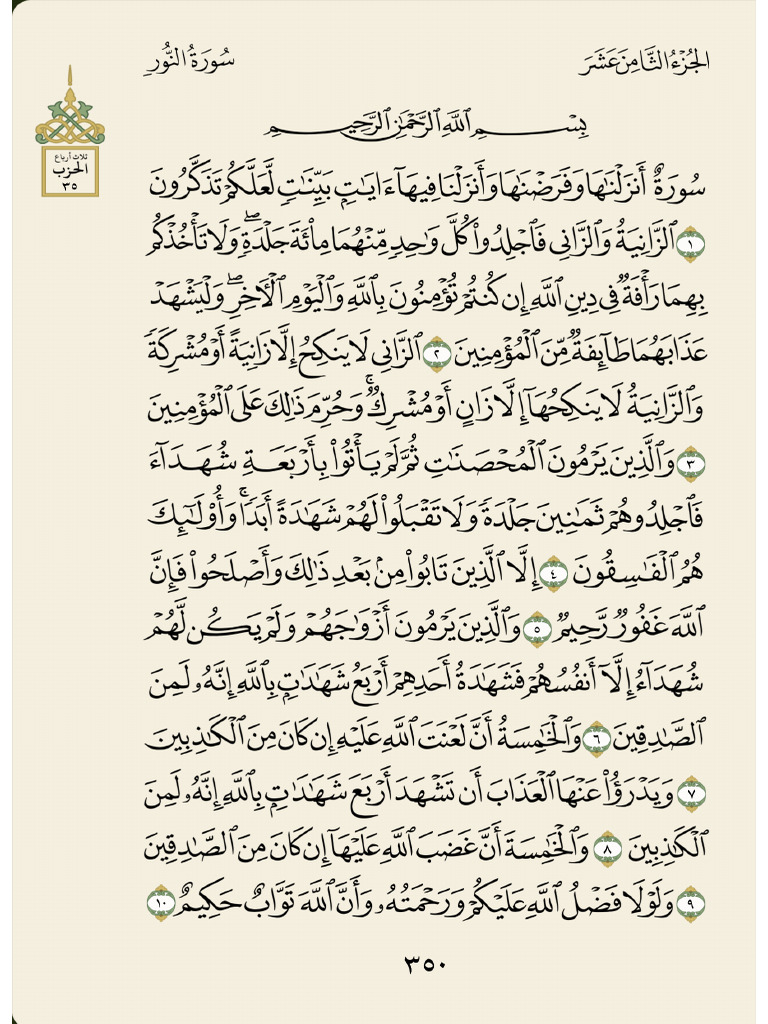 الجُزْءُ الثَّامِنَ عَشَرَ
سُورَةُ النُّورِ
ثلاث أرباع
الحزب
٣٥
بِسْمِ ٱللَّهِ ٱلرَّحْمَٰنِ ٱلرَّحِيمِ
سُورَةٌ أَنزَلْنَٰهَا وَفَرَضْنَٰهَا وَأَنزَلْنَا فِيهَآ ءَايَٰتٍۭ بَيِّنَٰتٍ لَّعَلَّكُمْ تَذَكَّرُونَ
١ ٱلزَّانِيَةُ وَٱلزَّانِي فَٱجْلِدُوا۟ كُلَّ وَٰحِدٍ مِّنْهُمَا مِا۟ئَةَ جَلْدَةٍ ۖ وَلَا تَأْخُذْكُم
بِهِمَا رَأْفَةٌ فِي دِينِ ٱللَّهِ إِن كُنتُمْ تُؤْمِنُونَ بِٱللَّهِ وَٱلْيَوْمِ ٱلْءَاخِرِ ۖ وَلْيَشْهَدْ
عَذَابَهُمَا طَآئِفَةٌ مِّنَ ٱلْمُؤْمِنِينَ ٢ ٱلزَّانِي لَا يَنكِحُ إِلَّا زَانِيَةً أَوْ مُشْرِكَةً
وَٱلزَّانِيَةُ لَا يَنكِحُهَآ إِلَّا زَانٍ أَوْ مُشْرِكٌ ۚ وَحُرِّمَ ذَٰلِكَ عَلَى ٱلْمُؤْمِنِينَ
٣ وَٱلَّذِينَ يَرْمُونَ ٱلْمُحْصَنَٰتِ ثُمَّ لَمْ يَأْتُوا۟ بِأَرْبَعَةِ شُهَدَآءَ
فَٱجْلِدُوهُمْ ثَمَٰنِينَ جَلْدَةً وَلَا تَقْبَلُوا۟ لَهُمْ شَهَٰدَةً أَبَدًا ۚ وَأُو۟لَٰٓئِكَ
هُمُ ٱلْفَٰسِقُونَ ٤ إِلَّا ٱلَّذِينَ تَابُوا۟ مِنۢ بَعْدِ ذَٰلِكَ وَأَصْلَحُوا۟ فَإِنَّ
ٱللَّهَ غَفُورٌ رَّحِيمٌ ٥ وَٱلَّذِينَ يَرْمُونَ أَزْوَٰجَهُمْ وَلَمْ يَكُن لَّهُمْ
شُهَدَآءُ إِلَّآ أَنفُسُهُمْ فَشَهَٰدَةُ أَحَدِهِمْ أَرْبَعُ شَهَٰدَٰتٍۭ بِٱللَّهِ إِنَّهُۥ لَمِنَ
ٱلصَّٰدِقِينَ ٦ وَٱلْخَٰمِسَةُ أَنَّ لَعْنَتَ ٱللَّهِ عَلَيْهِ إِن كَانَ مِنَ ٱلْكَٰذِبِينَ
٧ وَيَدْرَؤُا۟ عَنْهَا ٱلْعَذَابَ أَن تَشْهَدَ أَرْبَعَ شَهَٰدَٰتٍۭ بِٱللَّهِ إِنَّهُۥ لَمِنَ
ٱلْكَٰذِبِينَ ٨ وَٱلْخَٰمِسَةَ أَنَّ غَضَبَ ٱللَّهِ عَلَيْهَآ إِن كَانَ مِنَ ٱلصَّٰدِقِينَ
٩ وَلَوْلَا فَضْلُ ٱللَّهِ عَلَيْكُمْ وَرَحْمَتُهُۥ وَأَنَّ ٱللَّهَ تَوَّابٌ حَكِيمٌ ١٠
٣٥٠